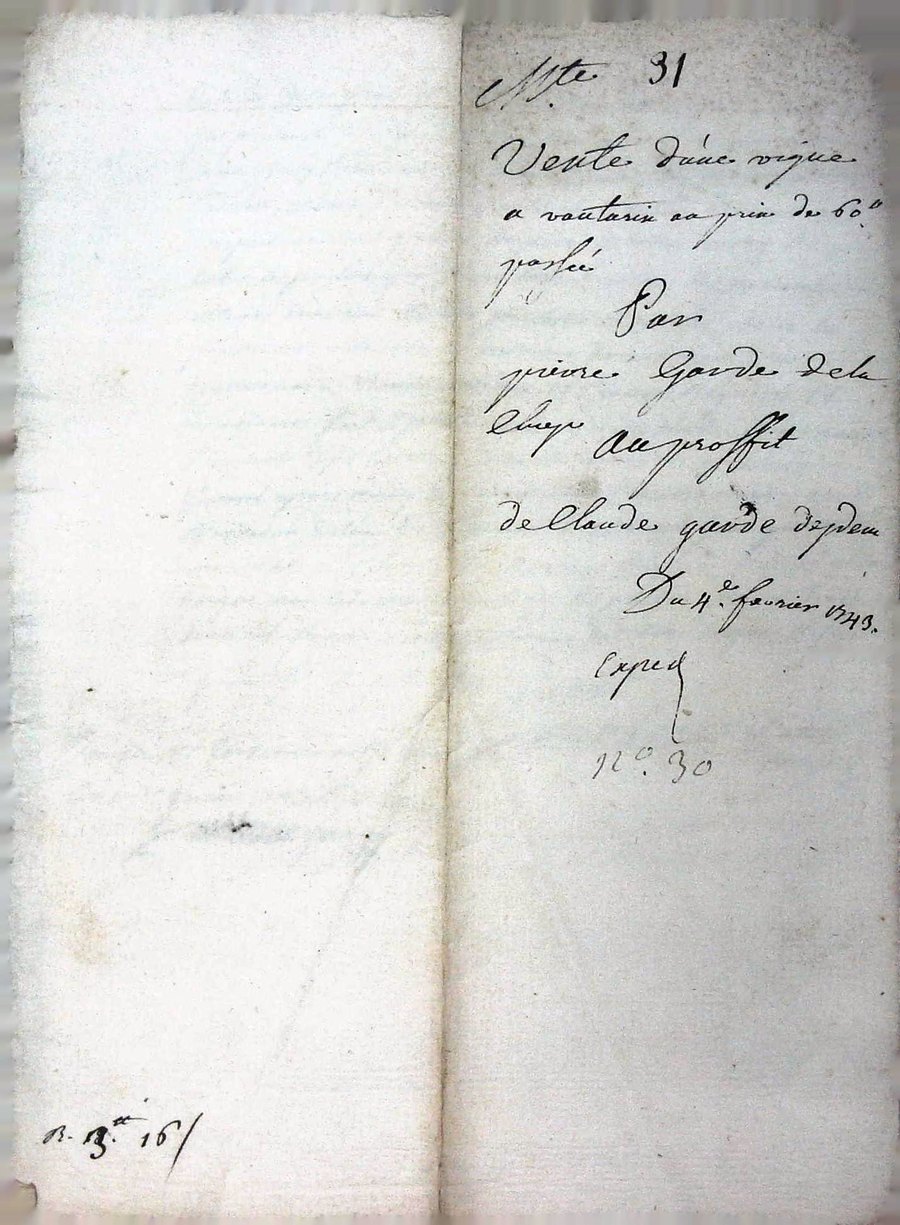 Mte 31
Vente d'une vigne
a vautarin au prix de 60tt
passée
Par
pierre Garde de la
au proffit
de Claude garde
Du 4e. fevrier 1743.
Exped
n°. 30
R. 3tt 16